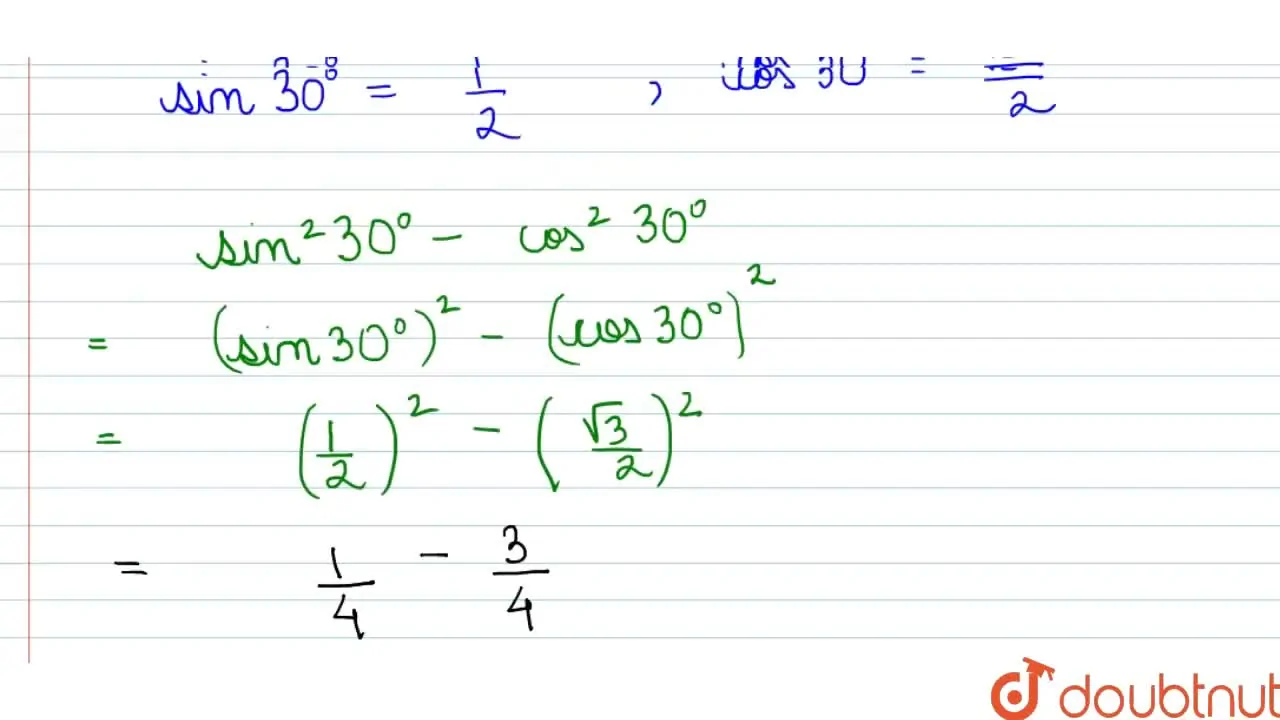 sin 30° = 1/2 , cos 30 = /2
sin² 30° - cos² 30°
= (sin 30°)² - (cos 30°)²
= (1/2)² - (√3/2)²
= 1/4 - 3/4
doubtnut